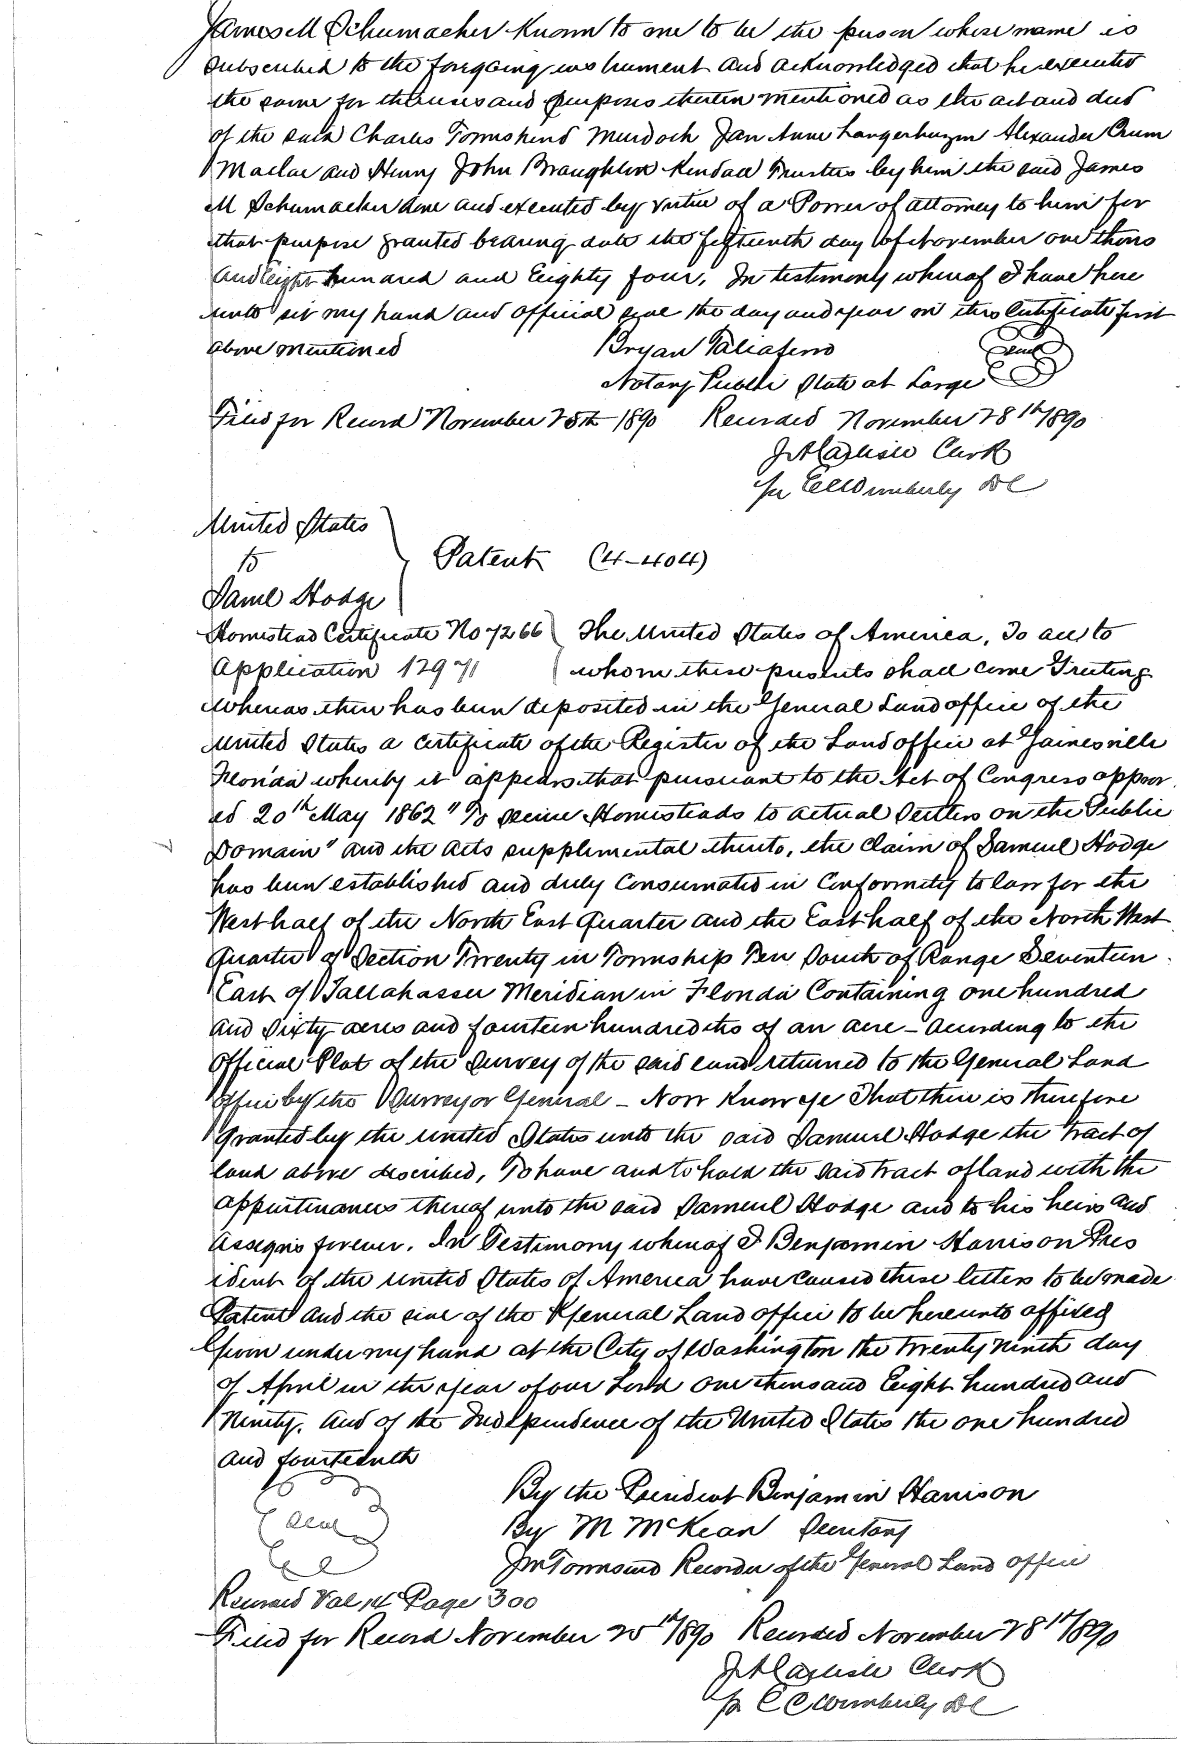 James M Schumacher Known to me to be the person whose name is
subscribed to the foregoing instrument and acknowledged that he executed
the same for the uses and purposes therein mentioned as the act and deed
of the said Charles Townshend Murdoch Jan Anne Langerhuizen Alexander Crum
Maclae and Henry John Braughton Kendall Trustees by him the said James
M Schumacher done and executed by virtue of a Power of attorney to him for
that purpose granted bearing date the fifteenth day of November one thous
and Eight hundred and Eighty four, In testimony whereof I have here
unto set my hand and official seal the day and year in this Certificate first
above mentioned Bryan Taliaferro
Seal
Notary Public State at Large
Filed for Record November 25th 1890 Recorded November 28th 1890
J A Carlisle Clerk
pr E C Wimberly DC
United States
to
Saml Hodge
Patent (4-404)
Homestead Certificate No 7266 The United States of America, To all to
Application 12971 whom these presents shall come Greeting
Whereas there has been deposited in the General Land office of the
United States a certificate of the Register of the Land office at Gainesville
Florida whereby it appears that pursuant to the Act of Congress approv
ed 20th May 1862 "To secure Homesteads to actual Settlers on the Public
Domain" and the Acts supplemental thereto, the Claim of Samuel Hodge
has been established and duly Consumated in Conformity to law for the
West half of the North East Quarter and the East half of the North West
Quarter of Section Twenty in Township Ten South of Range Seventeen
East of Tallahassee Meridian in Florida Containing one hundred
and Sixty acres and fourteen hundredths of an acre - According to the
Official Plat of the Survey of the said land returned to the General Land
Office by the Surveyor General - Now Know ye That there is therefore
granted by the United States unto the said Samuel Hodge the Tract of
land above described, To have and to hold the said tract of land with the
appurtenances thereof unto the said Samuel Hodge and to his heirs and
Assigns forever. In Testimony whereof I Benjamin Harrison Pres
ident of the United States of America have caused these letters to be made
Patent and the seal of the General Land office to be hereunto affixed
Given under my hand at the City of Washington the Twenty ninth day
of April in the year of our Lord one thousand Eight hundred and
Ninety. And of the Independence of the United States the one hundred
and fourteenth
Seal
By the President Benjamin Harrison
By M McKean Secretary
J M Townsend Recorder of the General Land office
Recorded Vol 14 Page 300
Filed for Record November 25th 1890 Recorded November 28th 1890
J A Carlisle Clerk
pr E C Wimberly DC